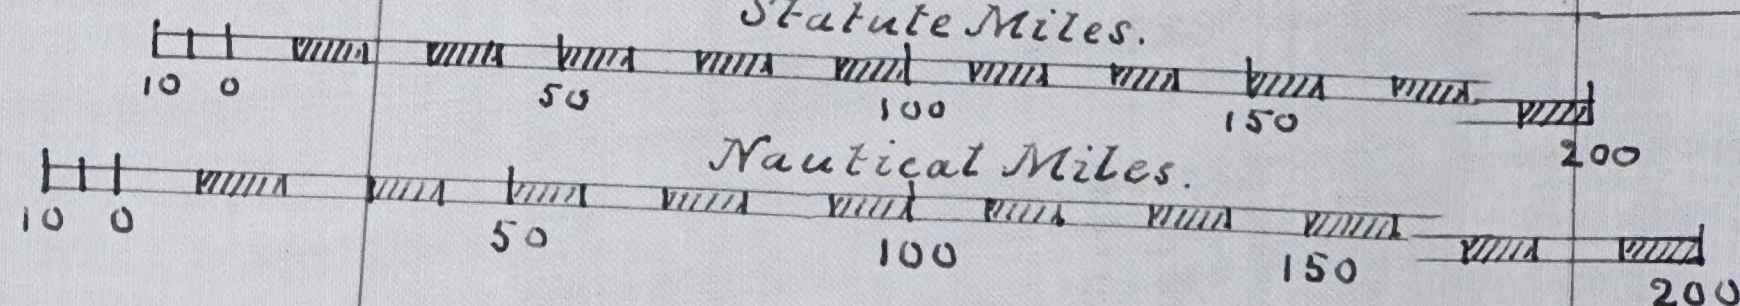 Statute Miles.
10 0 50 100 150 200
Nautical Miles.
10 0 50 100 150 200